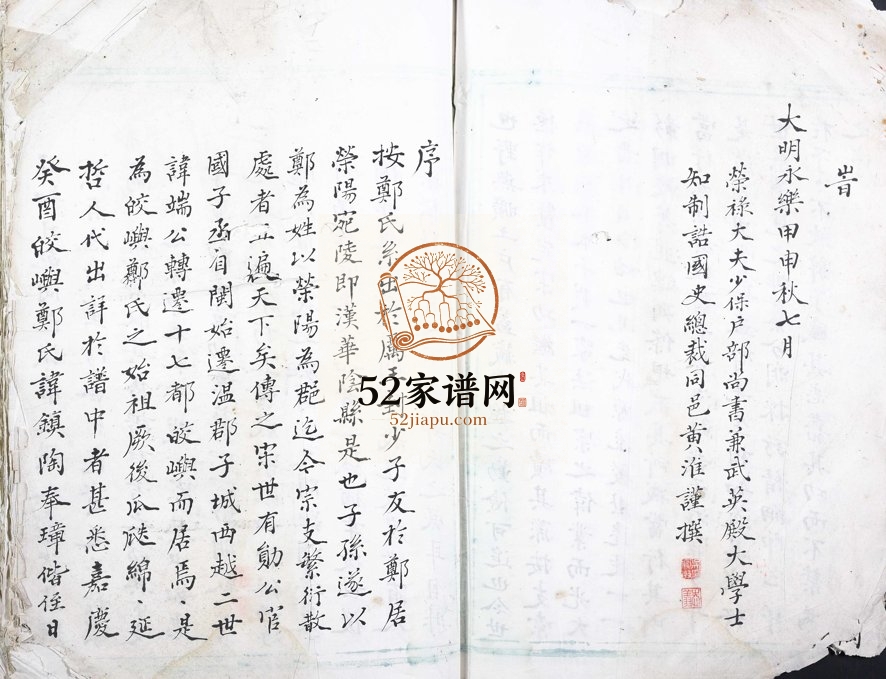 旹
大明永樂甲申秋七月
榮祿大夫少保戶部尚書兼武英殿大學士
知制誥國史總裁同邑黃淮謹撰
序
按鄭氏系出於厲王封少子友於鄭居
榮陽宛陵即漢華陰縣是也子孫遂以
鄭為姓以榮陽為郡迄今宗支繁衍散
處者正遍天下矣傳之宋世有勛公官
國子丞自閩始遷温郡子城西越二世
諱端公轉遷十七都皎嶼而居焉、是
為皎嶼鄭氏之始祖厥後瓜瓞綿、延
哲人代出詳於譜中者甚悉嘉慶
癸酉皎嶼鄭氏諱鎮陶奉瑋偕侄日
52家谱网
52jiapu.com